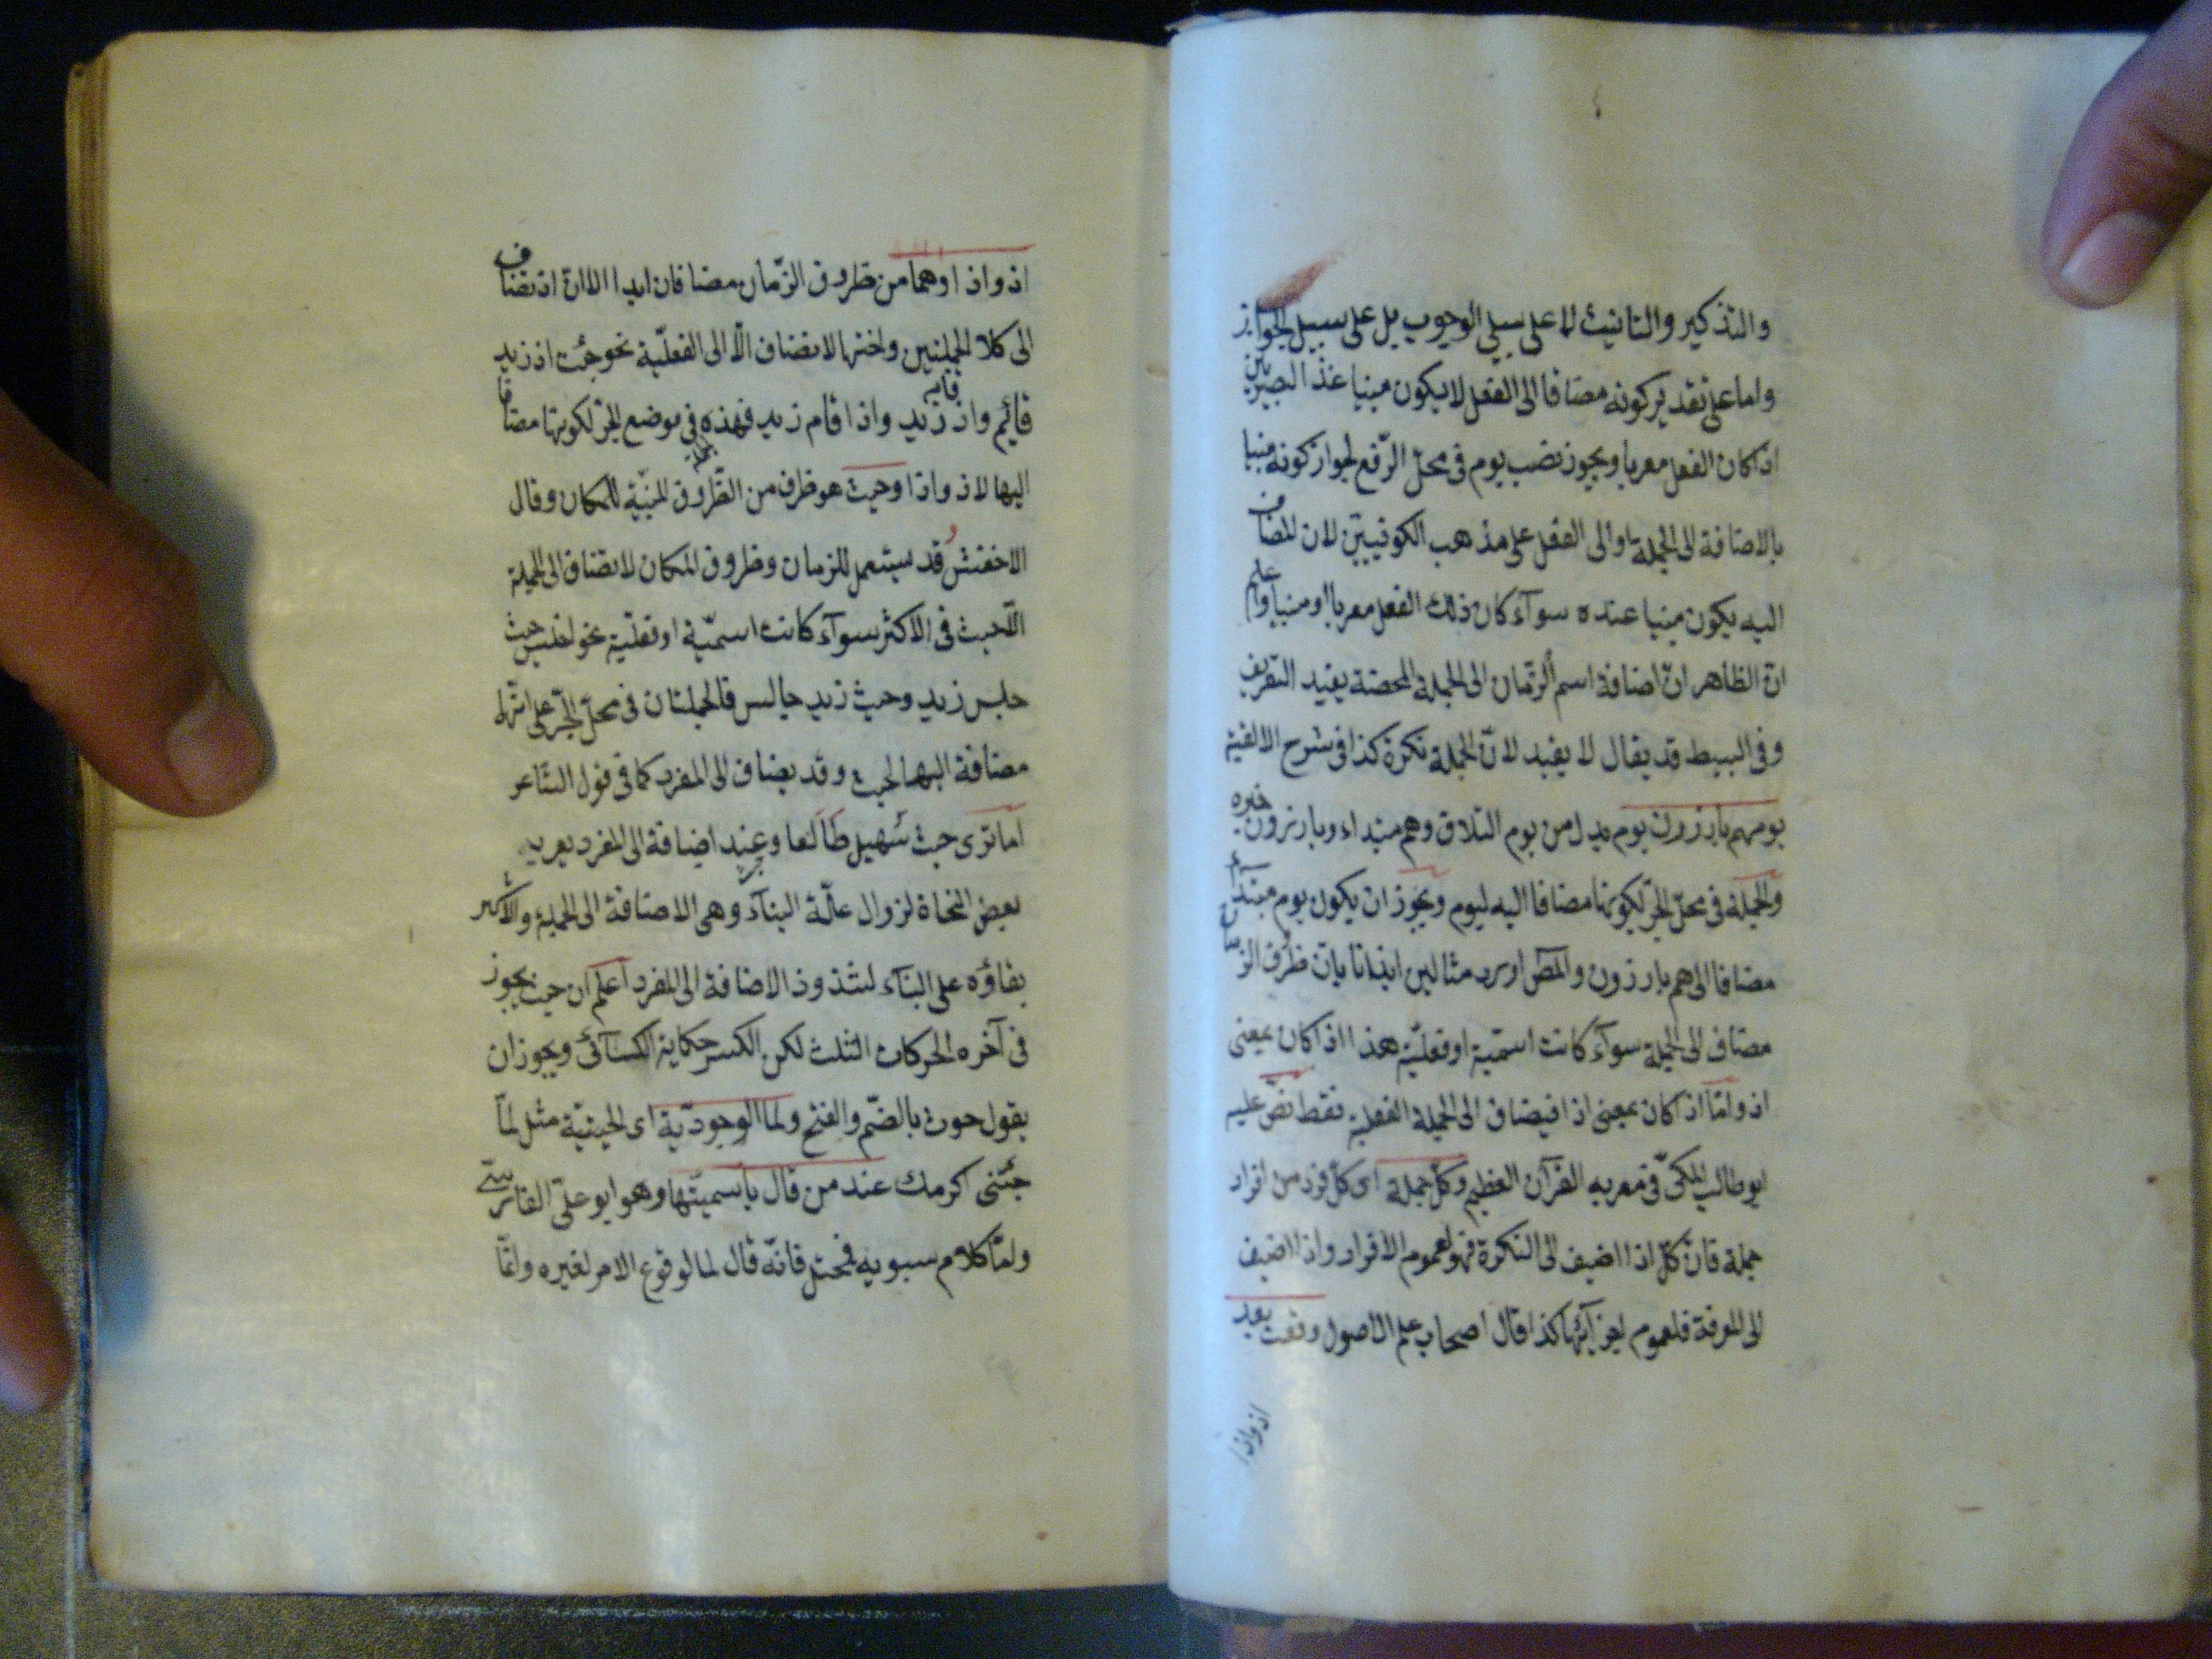 والتذكير والتانيث لا على سبيل الوجوب بل على سبيل الجواز
واما على تقدير كونه مضافا الى الفعل لا يكون مبنيا عند البصريين
اذ كان الفعل معربا ويجوز نصب يوم فى محل الرفع لجواز كونه مبنيا
بالاضافة الى الجملة والى الفعل على مذهب الكوفيين لان المضاف
اليه يكون مبنيا عنده سوآء كان ذلك الفعل معربا او مبنيا واعلم
انّ الظاهر انّ اضافة اسم الزمان الى الجملة المحضة يفيد التعريف
وفى البسيط قد يقال لا يفيد لانّ الجملة نكرة كذا فى شرح الالفية
يومهم بارزون يوم بدل من يوم التلاق وهم مبتداء وبارزون خبره
والجملة فى محلّ الجرّ لكونها مضافا اليه ليوم ويجوز ان يكون يوم مبتدأ
مضافا الى هم بارزون والمص اورد مثالين ايذانا بان ظرف الزمان
مضاف الى الجملة سوآء كانت اسمية او فعليّة هذا اذا كان بمعنى
اذ وامّا اذ كان بمعنى اذا فيضاف الى الجملة الفعلية فقط نصّ عليه
ابو طالب المكىّ فى معربه القرآن العظيم وكلّ جملة اى كلّ فرد من افراد
جملة فان كلّ اذا اضيف الى النكرة فهو لعموم الافراد واذا اضيف
الى المعرفة فلعموم اجزآئها كذا قال اصحاب علم الاصول وقعت بعد
اذ واذا
اذ واذا وهما من ظروف الزّمان مضافان ابدا الا ان اذ تضاف
الى كلا الجملتين واختها لا تضاف الّا الى الفعليّة نحو جئت اذ زيد
قائم واذ قام زيد واذا قام زيد فهذه فى موضع الجرّ لكونها مضافا
اليها لاذ واذا وحيث هو ظرف من الظّروف المبنيّة للمكان وقال
الاخفش قد يستعمل للزمان وظروف المكان لا تضاف الى الجملة
الّا حيث فى الاكثر سوآء كانت اسميّة او فعليّة نحو اجلس حيث
جلس زيد وحيث زيد جالس فالجملتان فى محلّ الجرّ على انّها
مضافة اليها لحيث وقد يضاف الى المفرد كما فى قول الشاعر
اما ترى حيث سهيل طالعا وعند اضافة الى المفرد يعربه
بعض النحاة لزوال علّة البنآء وهى الاضافة الى الجملة والاكثر
بقاؤه على البنآء لشذوذ الاضافة الى المفرد اعلم ان حيث يجوز
فى آخره الحركات الثلث لكن الكسر حكاية الكسآئى ويجوز ان
يقول حوث بالضّم والفتح ولما الوجوديّة اى الحينيّة مثل لمّا
جئتنى اكرمك عند من قال باسميّتها وهو ابو علىّ الفارسىّ
وامّا كلام سيبويه فمحتمل فانّه قال لما لوقوع الامر لغيره وامّا